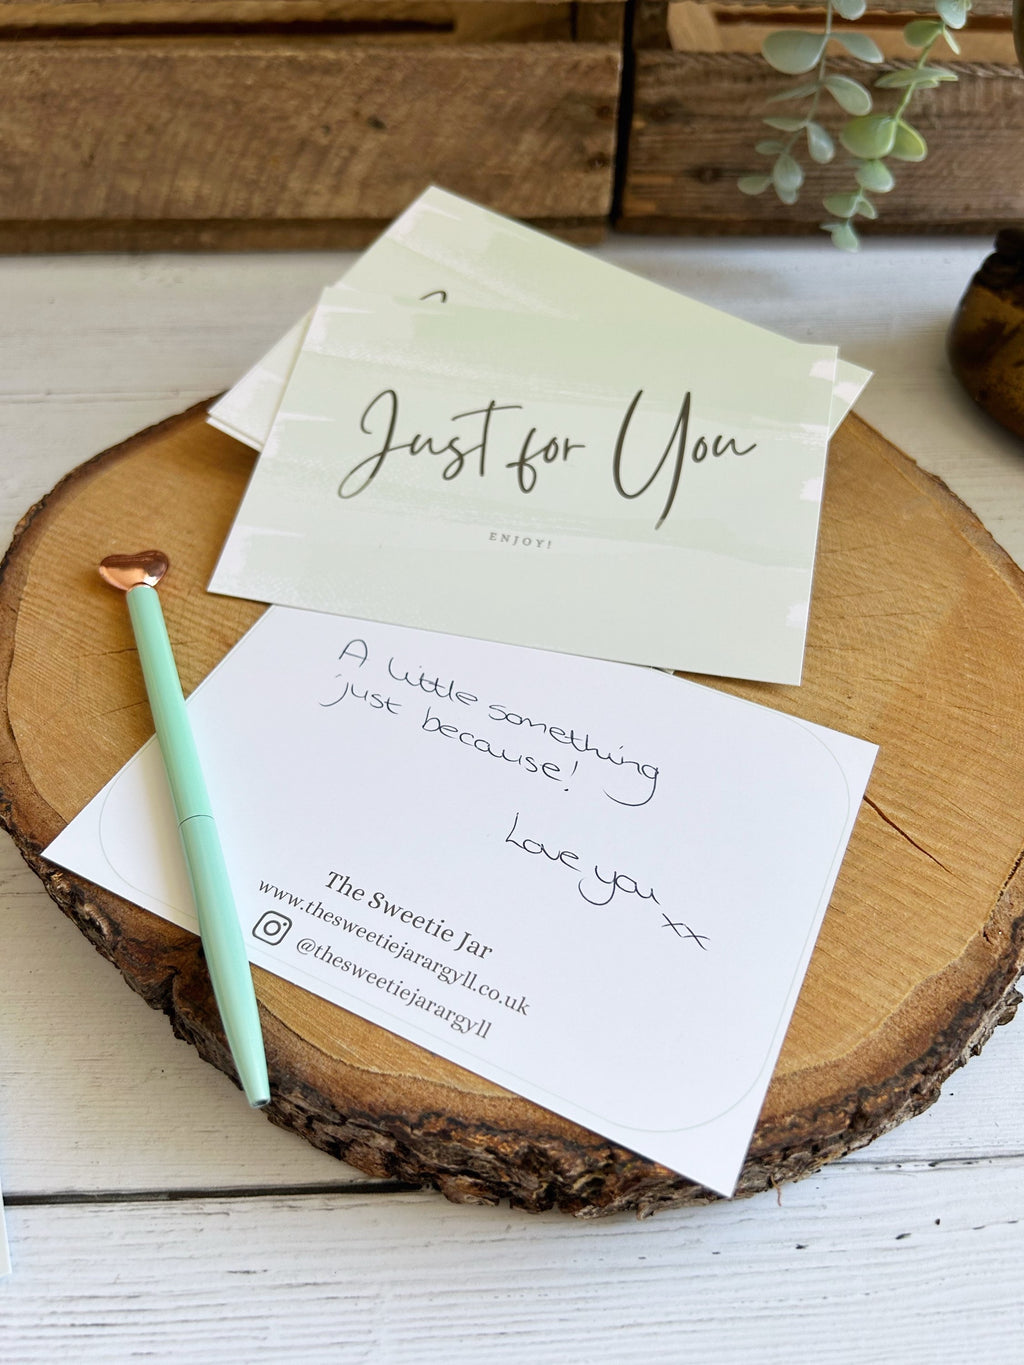 Just for You
ENJOY!
A little something
just because!
Love you xx
The Sweetie Jar
www.thesweetiejarargyll.co.uk
@thesweetiejarargyll